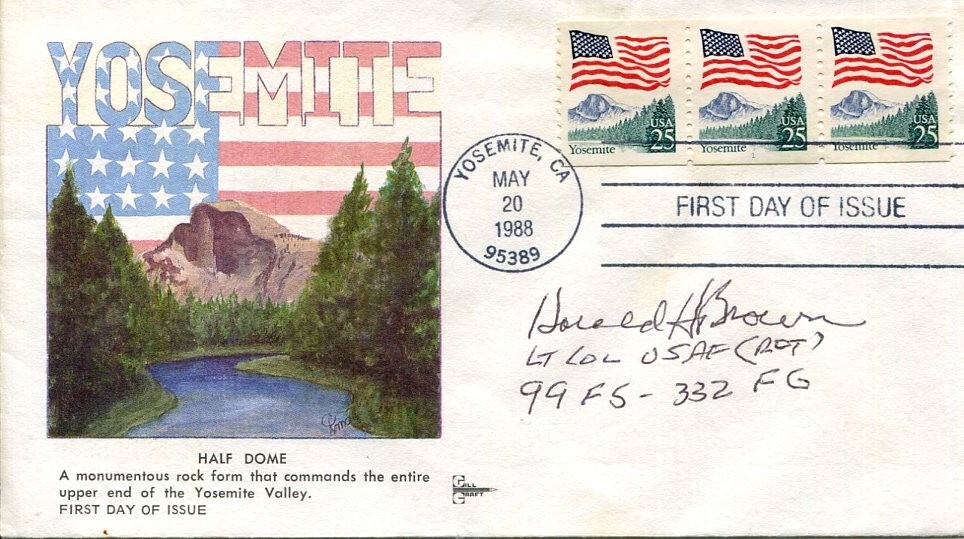 YOSEMITE
USA
25
Yosemite
USA
25
Yosemite
1
USA
25
Yosemite
YOSEMITE, CA
MAY
20
1988
95389
FIRST DAY OF ISSUE
Harold H Brown
LT COL USAF (RET)
99 FS - 332 FG
HALF DOME
A monumentous rock form that commands the entire
upper end of the Yosemite Valley.
FIRST DAY OF ISSUE
GILL
CRAFT